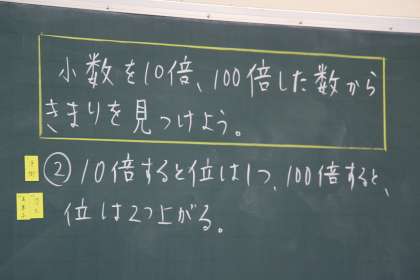 小数を10倍、100倍した数から
きまりを見つけよう。
② 10倍すると位は1つ、100倍すると、
位は2つ上がる。